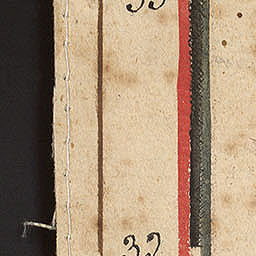 33
32